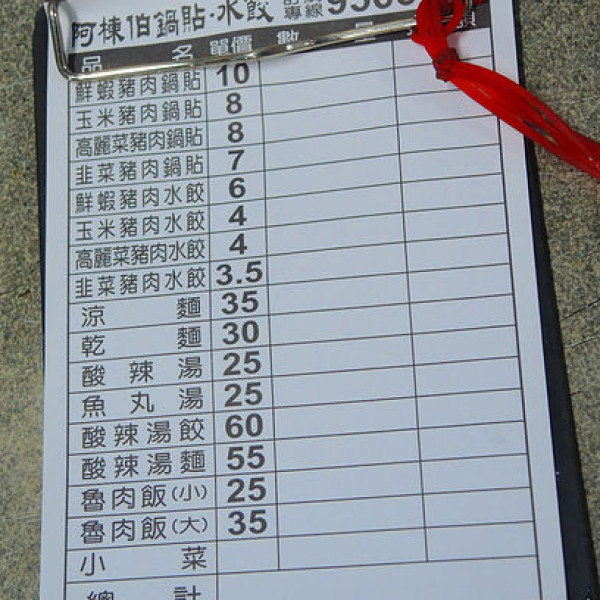 阿棟伯鍋貼·水餃 專線
品名 單價 數
鮮蝦豬肉鍋貼 10
玉米豬肉鍋貼 8
高麗菜豬肉鍋貼 8
韭菜豬肉鍋貼 7
鮮蝦豬肉水餃 6
玉米豬肉水餃 4
高麗菜豬肉水餃 4
韭菜豬肉水餃 3.5
涼麵 35
乾麵 30
酸辣湯 25
魚丸湯 25
酸辣湯餃 60
酸辣湯麵 55
魯肉飯(小) 25
魯肉飯(大) 35
小菜
總計